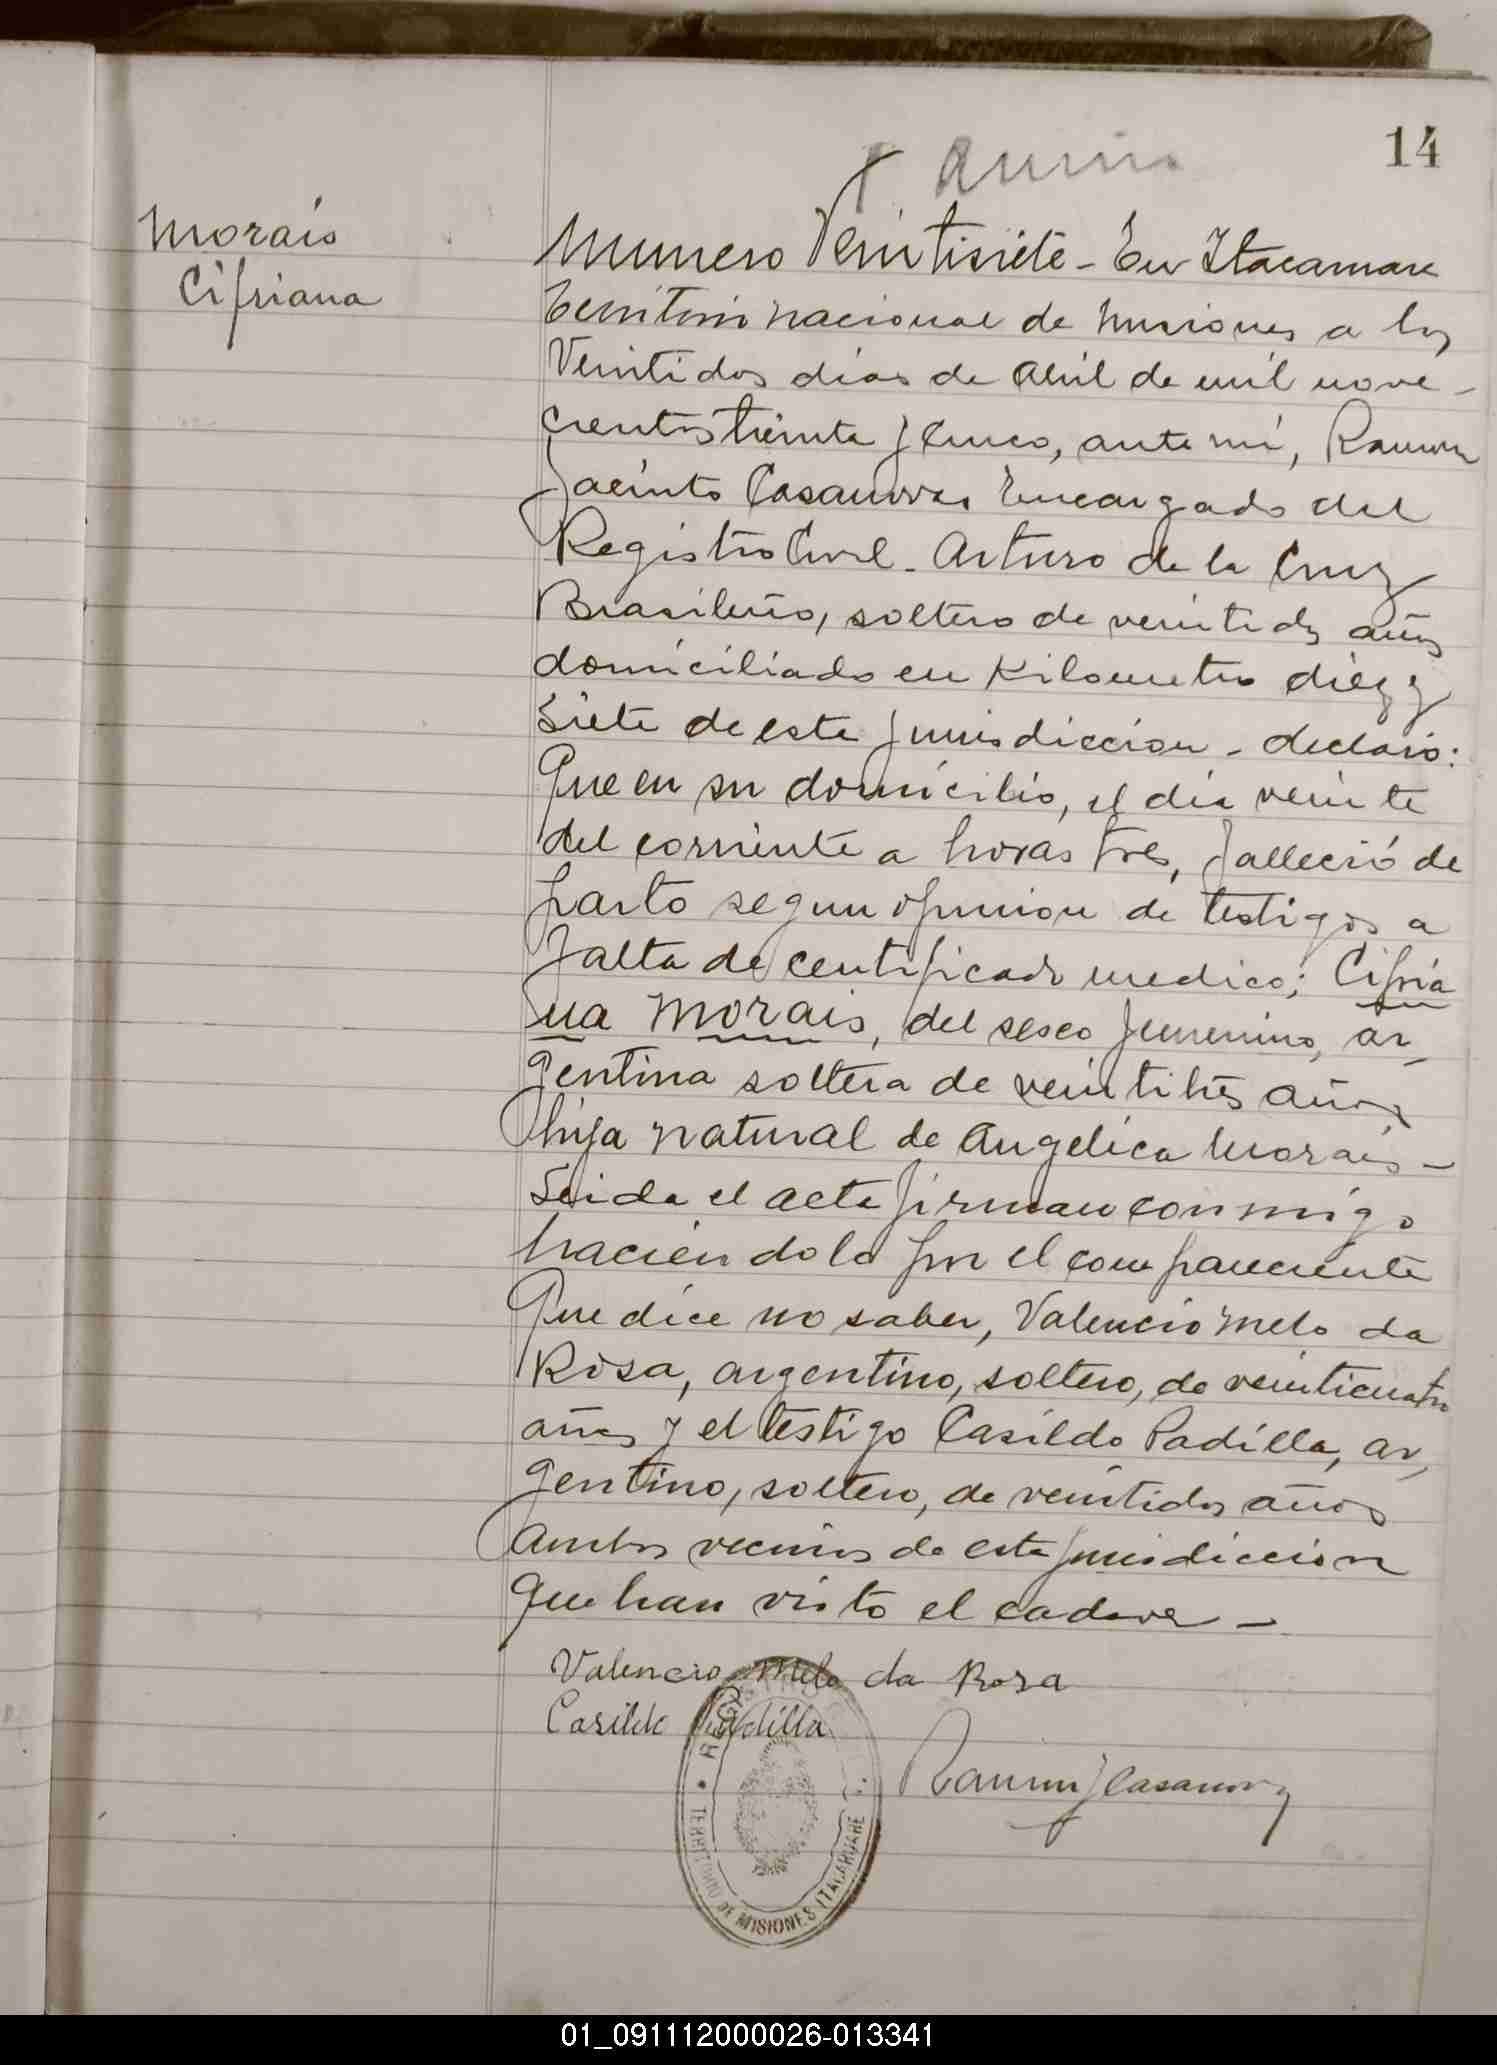 14
Morais
Cipriana
Numero Veintisiete - En Itacaruare
Territorio nacional de Misiones a los
Veintidos dias de Abril de mil nove-
cientos treinta y cinco, ante mí, Ramon
Jacinto Casanovas Encargado del
Registro Civil - Arturo de la Cruz
Brasileño, soltero de veintidos años
domiciliado en Kilometro diez y
siete de esta jurisdiccion - declaró:
Que en su domicilio, el dia veinte
del corriente a horas tres, falleció de
parto segun opinion de testigos a
falta de certificado medico; Cipria
na Morais, del sexo femenino, ar-
gentina soltera de veintitrés años
hija natural de Angelica Morais -
Leida el acta firman conmigo
haciendolo por el compareciente
Que dice no saber, Valencio Melo da
Rosa, argentino, soltero, de veinticuatro
años y el testigo Casildo Padilla, ar-
gentino, soltero, de veintidos años
ambos vecinos de esta jurisdiccion
Que han visto el cadaver -
Valencio Melo da Rosa
Casildo Padilla
Ramon J Casanovas
REGISTRO CIVIL
TERRITORIO DE MISIONES ITACARUARE
01_091112000026-013341